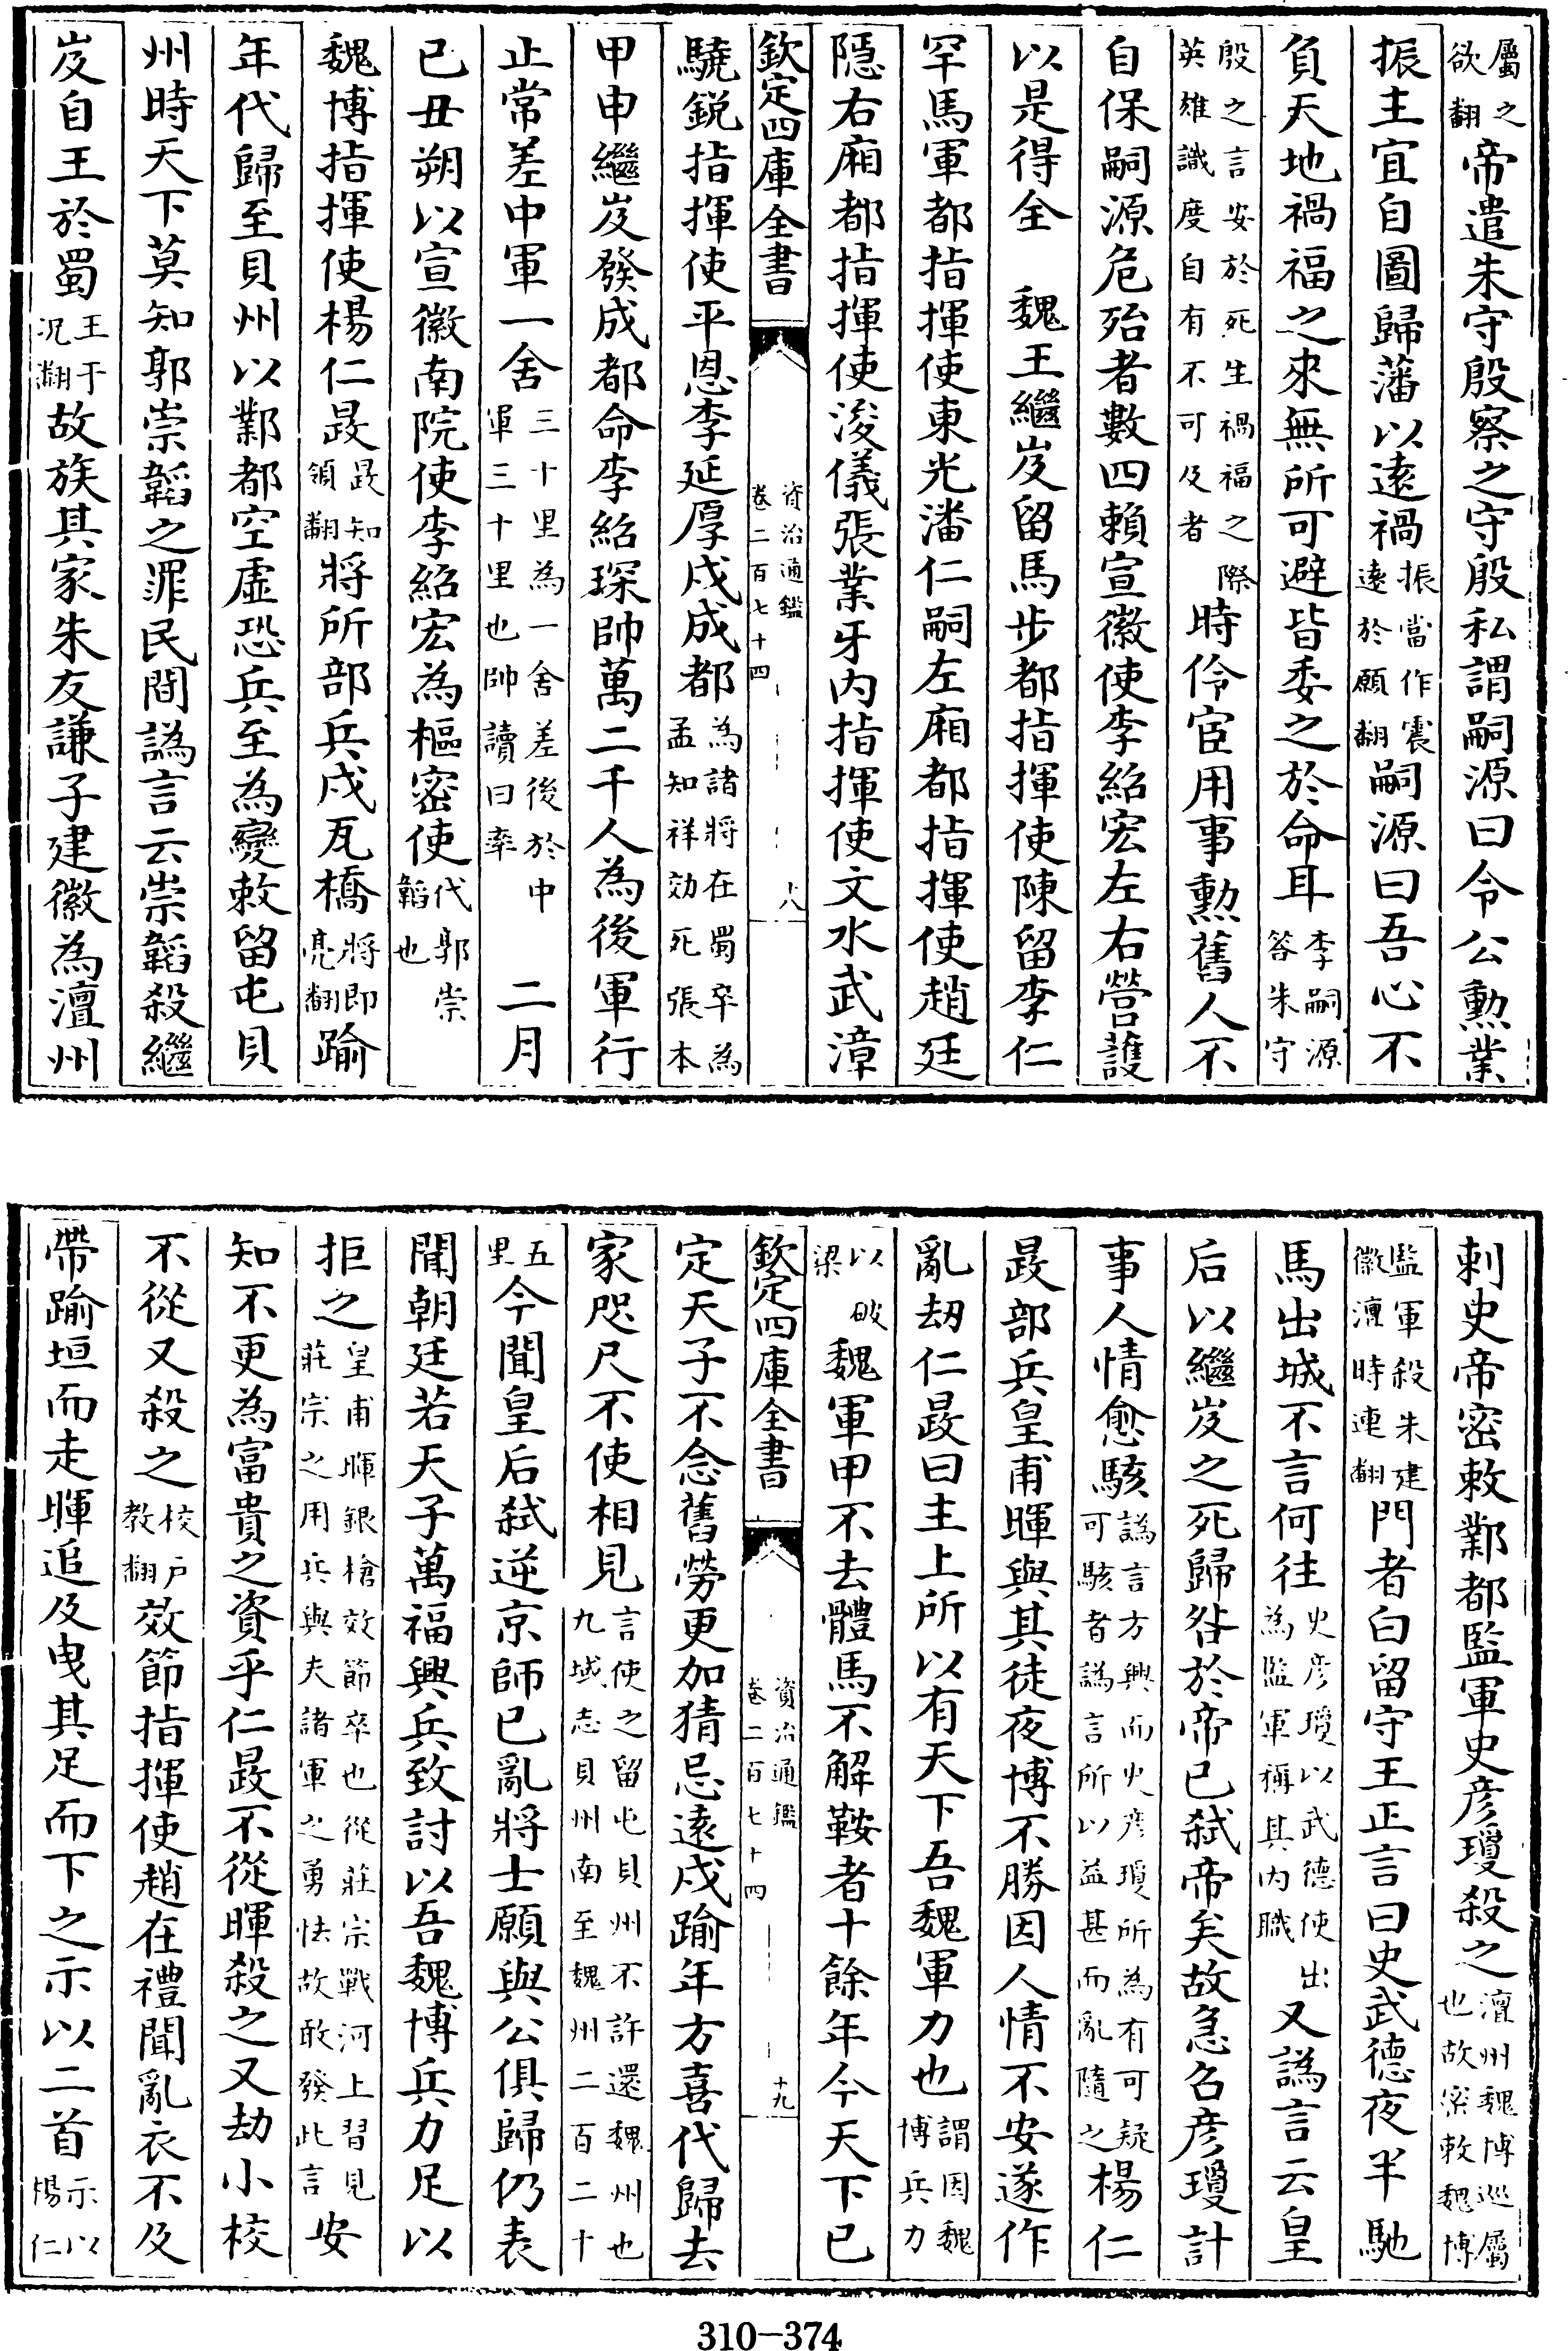 屬之欲翻帝遣朱守殷察之守殷私謂嗣源曰令公勲業
振主宜自圖歸藩以遠禍振當作震遠於願翻嗣源曰吾心不
負天地禍福之來無所可避皆委之於命耳李嗣源答朱守
殷之言安於死生禍福之際英雄識度自有不可及者時伶宦用事勲舊人不
自保嗣源危殆者數四賴宣徽使李紹宏左右營護
以是得全　魏王繼岌留馬步都指揮使陳留李仁
罕馬軍都指揮使東光潘仁嗣左廂都指揮使趙廷
隱右廂都指揮使浚儀張業牙内指揮使文水武漳
欽定四庫全書　資治通鑑卷二百七十四　十八
驍鋭指揮使平恩李延厚戍成都為諸將在蜀卒為孟知祥効死張本
甲申繼岌發成都命李紹琛帥萬二千人為後軍行
止常差中軍一舍三十里為一舍差後於中軍三十里也帥讀曰率　二月
已丑朔以宣徽南院使李紹宏為樞密使代郭崇韜也
魏博指揮使楊仁晸晸知領翻將所部兵戍瓦橋將即亮翻踰
年代歸至貝州以鄴都空虛恐兵至為變敕留屯貝
州時天下莫知郭崇韜之罪民間譌言云崇韜殺繼
岌自王於蜀王于况翻故族其家朱友謙子建徽為澶州
刺史帝密敕鄴都監軍史彦瓊殺之澶州魏博巡屬也故宻敕魏博
監軍殺朱建徽澶時連翻門者白留守王正言曰史武德夜半馳
馬出城不言何往史彦瓊以武德使出為監軍稱其内職又譌言云皇
后以繼岌之死歸咎於帝已弑帝矣故急召彦瓊計
事人情愈駭譌言方興而史彦瓊所為有可疑可駭者譌言所以益甚而亂隨之楊仁
晸部兵皇甫暉與其徒夜博不勝因人情不安遂作
亂刧仁晸曰主上所以有天下吾魏軍力也謂因魏博兵力
以破梁魏軍甲不去體馬不解鞍者十餘年今天下已
欽定四庫全書　資治通鑑卷二百七十四　十九
定天子不念舊勞更加猜忌遠戍踰年方喜代歸去
家咫尺不使相見言使之留屯貝州不許還魏州也九域志貝州南至魏州二百二十
五里今聞皇后弑逆京師已亂將士願與公俱歸仍表
聞朝廷若天子萬福興兵致討以吾魏博兵力足以
拒之皇甫暉銀槍效節卒也從莊宗戰河上習見莊宗之用兵與夫諸軍之勇怯故敢發此言安
知不更為富貴之資乎仁晸不從暉殺之又劫小校
不從又殺之校户教翻效節指揮使趙在禮聞亂衣不及
帶踰垣而走暉追及曳其足而下之示以二首示以楊仁
310-374